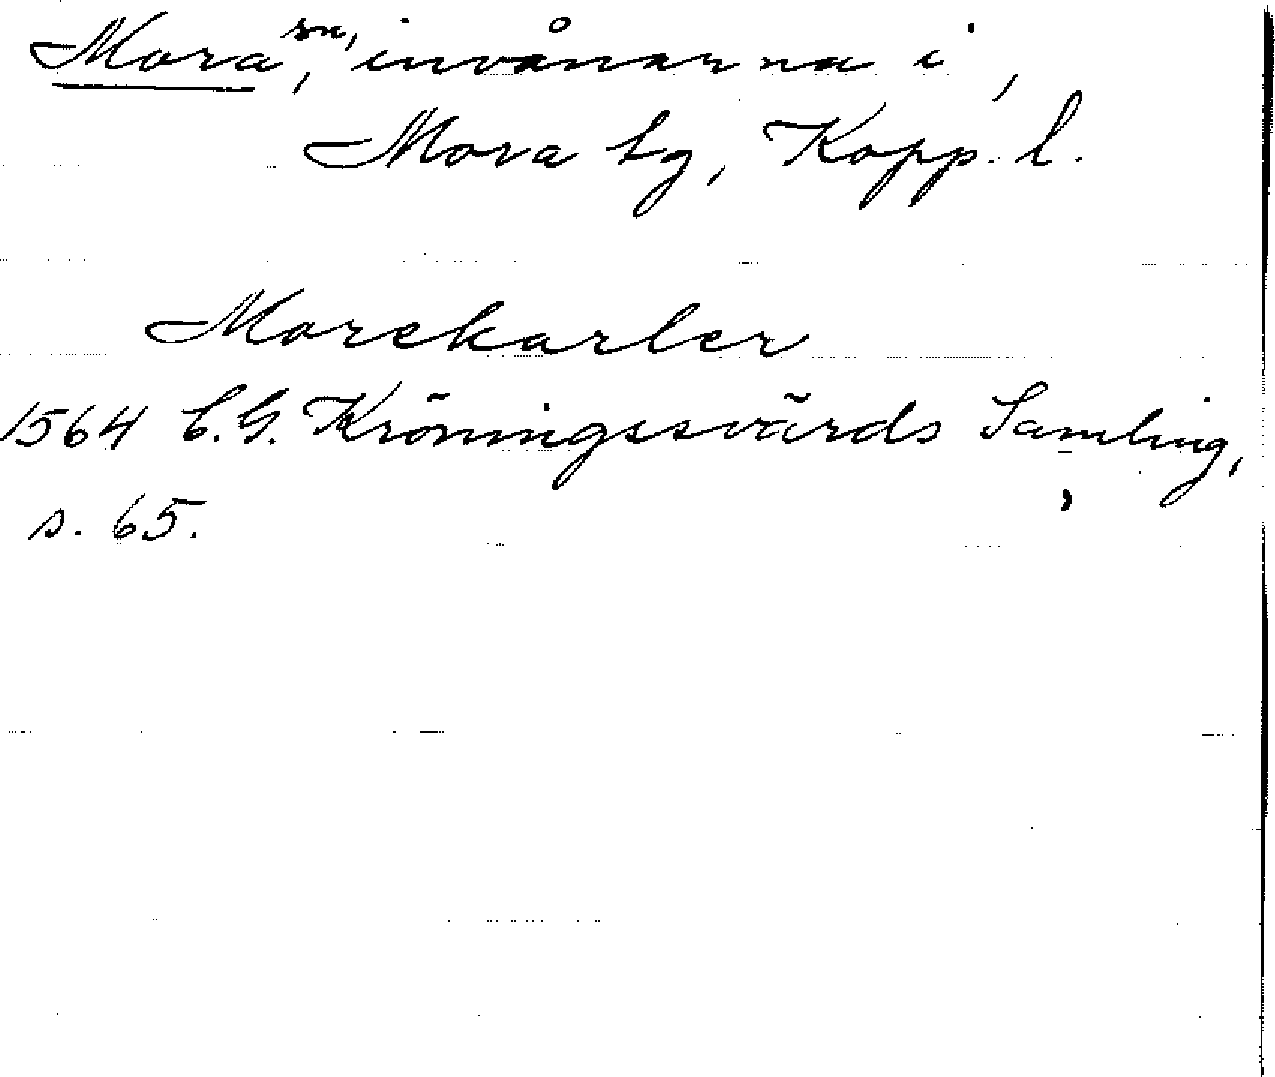 Mora sn, invånarna i,
Mora tg, Kopp. l.
Morekarler
1564 C.G. Kröningssvärds Samling,
s. 65.